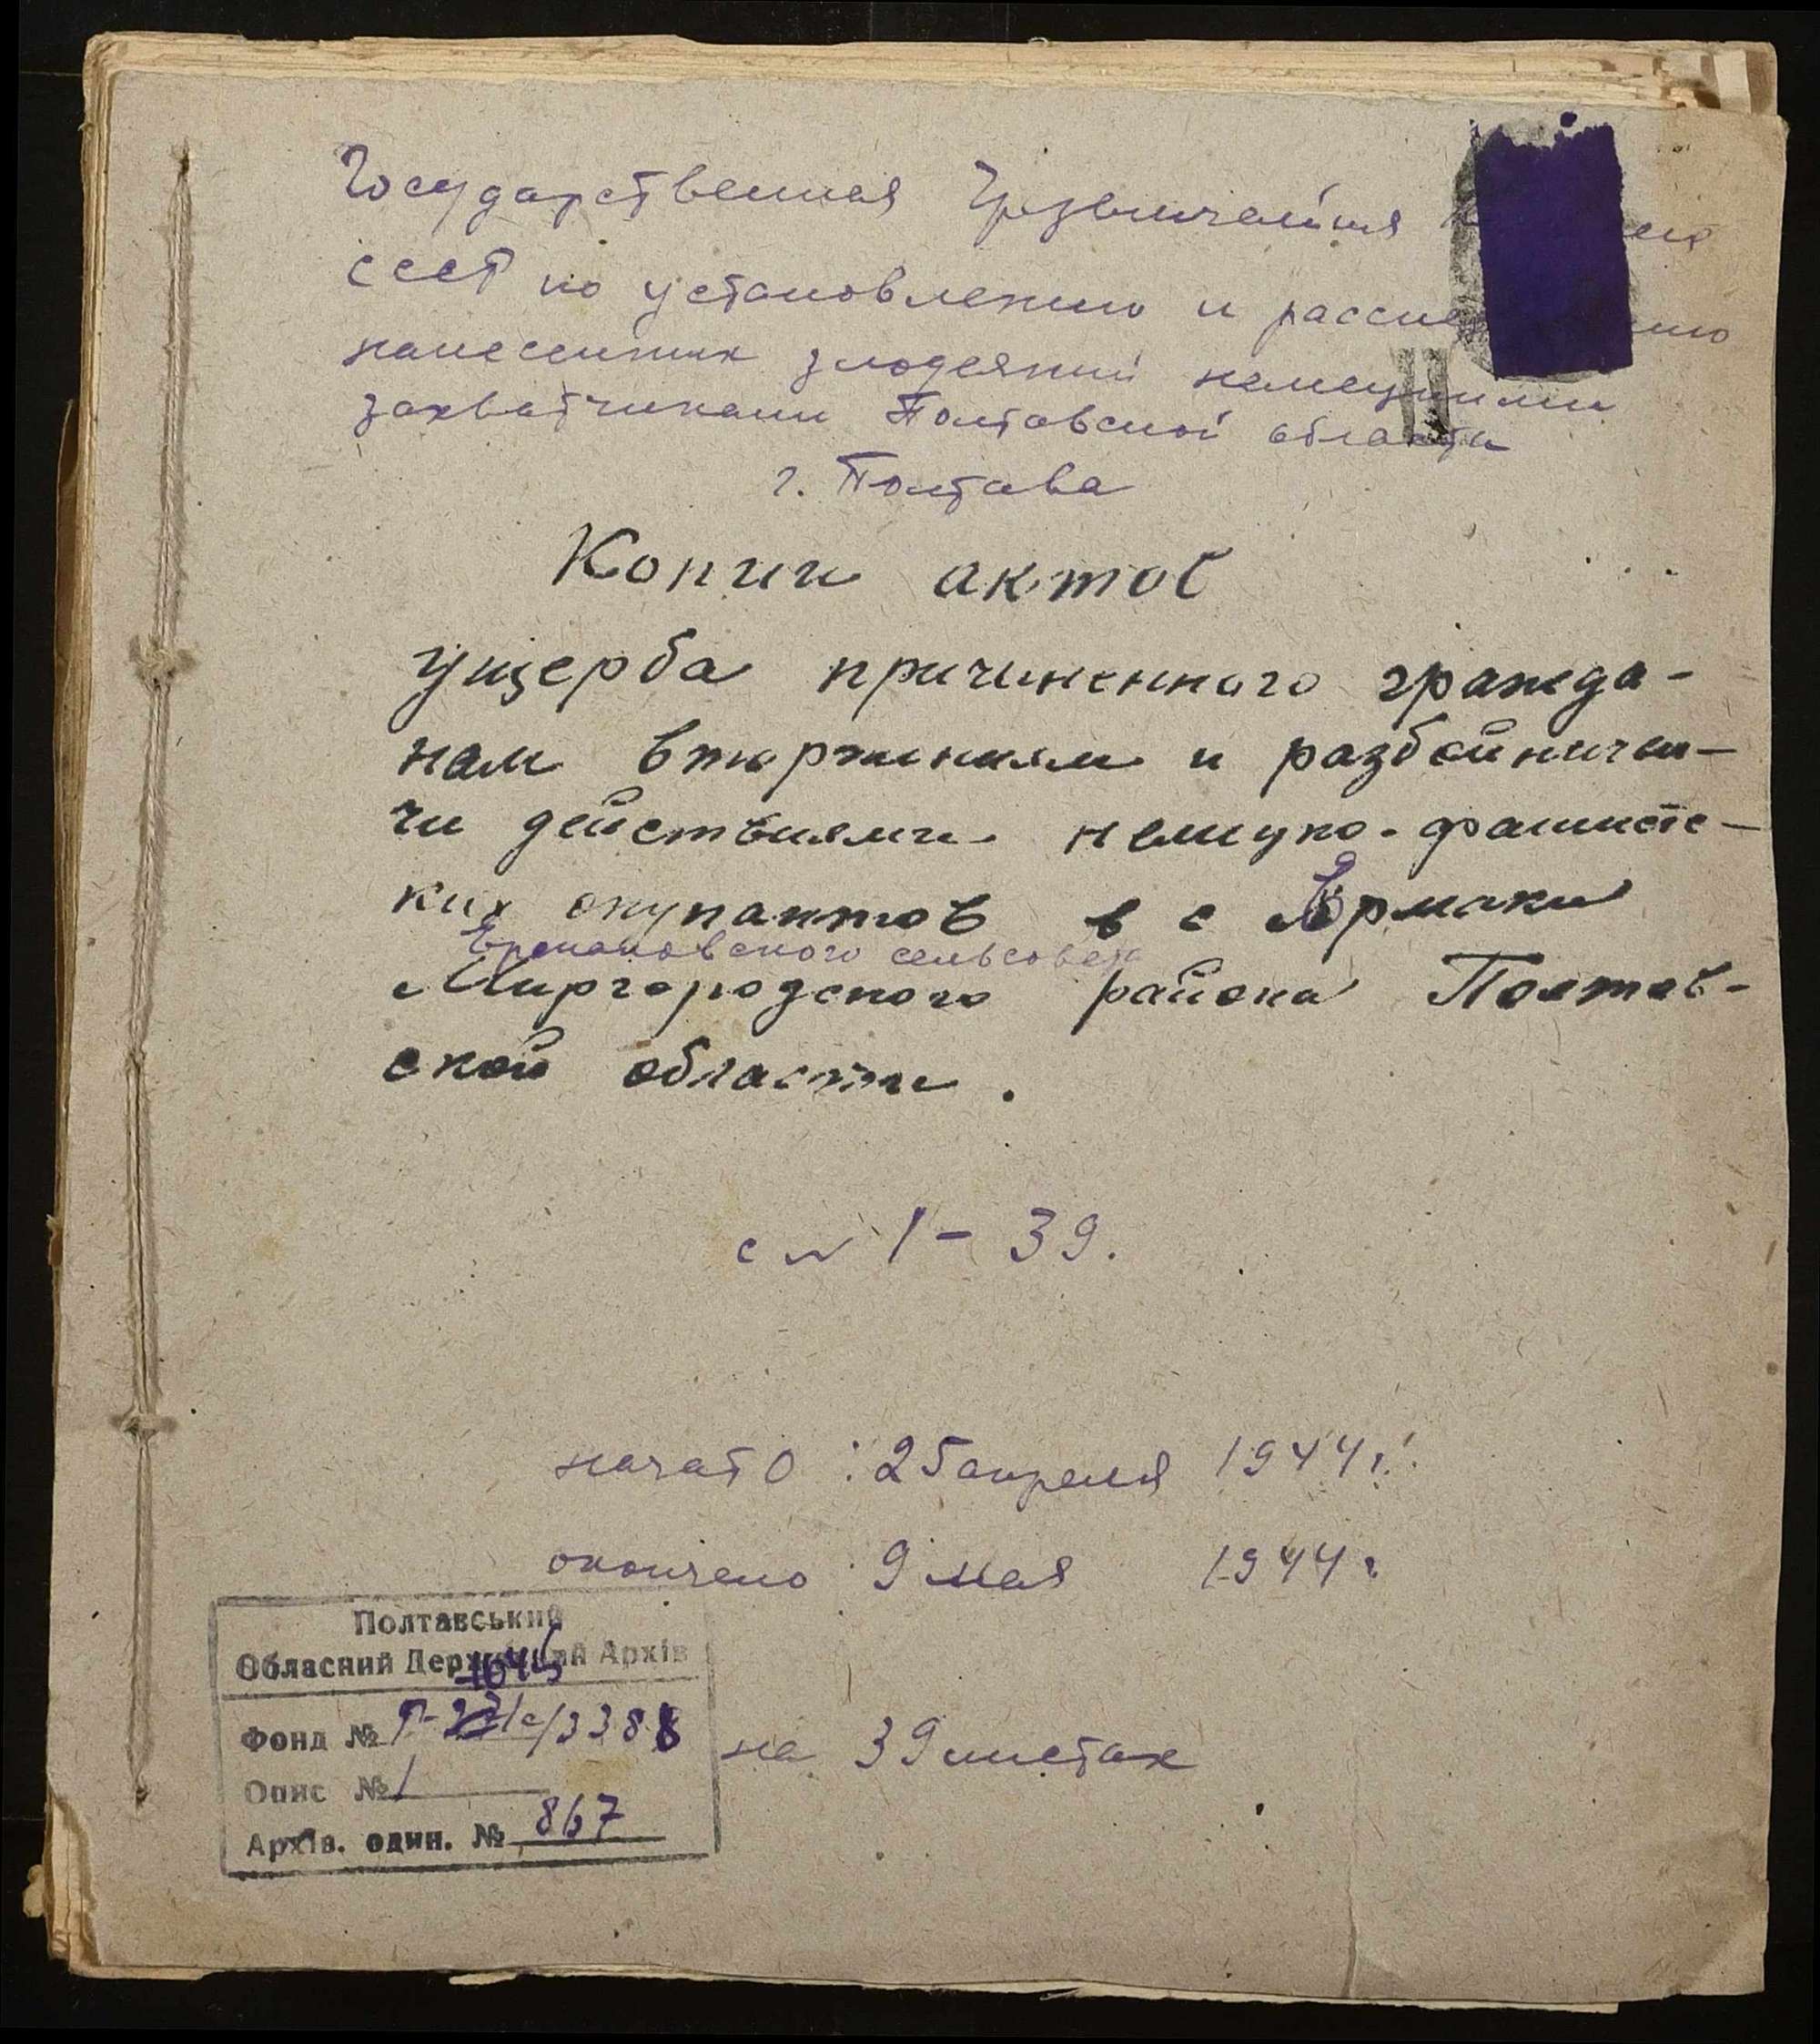 Государственная Чрезвычайная
СССР по установлению и
нанесенных злодеяний немецкими
захватчиками Полтавской области
г. Полтава
Копии актов
ущерба причиненного гражда-
нам вторжением и разбойничьи-
чи действиями немецко-фашистс-
ких окупантов в с Ермаки
сельсовета
Миргородского района Полтав-
ской области.
с № 1 - 39.
начато: 25 апреля 1944 г.
окончено 9 мая 1944 г
Полтавський
Обласний Державний Архів
Фонд № 3388
Опис № 1
Архів. один. № 867
на 39 листах